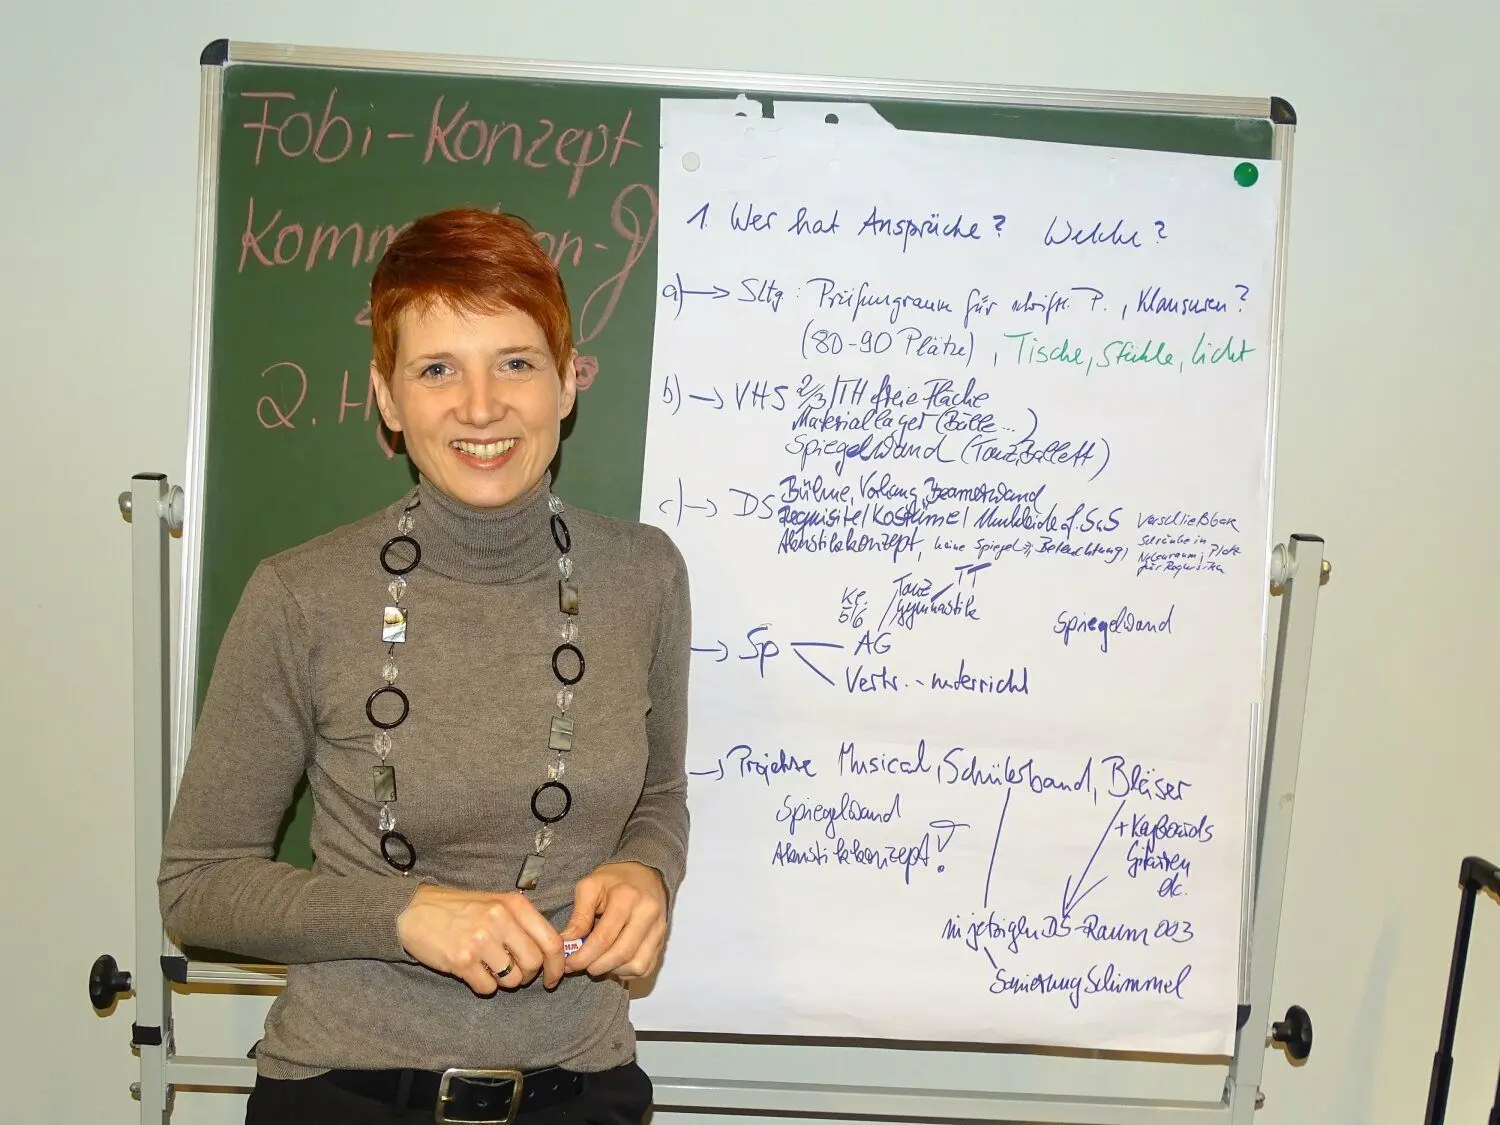 Fobi-Konzept
2. H
1. Wer hat Ansprüche? Welche?
a) → Sltg.: Prüfungsraum für schriftl. P., Klausuren?
(80-90 Plätze), Tische, Stühle, Licht
b) → VHS 2/3 TH freie Fläche
Materiallager (Bälle...)
Spiegelwand (Tanz, Ballett)
c) → DS Bühne, Vorhang, Beamerwand
Requisite/Kostüme/ Umkleide f. SuS
Akustikkonzept, keine Spiegel, Beleuchtung,
verschließbare
Schränke in
Nebenraum, Platz
für Requisiten
Kl. 5/6
Tanz
TT
Gymnastik
Spiegelwand
→ Sp AG
Vertr.-unterricht
→ Projekte Musical, Schülerband, Bläser
Spiegelwand
Akustikkonzept!
+ Keyboards
Gitarren
etc.
in jetzigen DS-Raum 003
Sanierung Schimmel